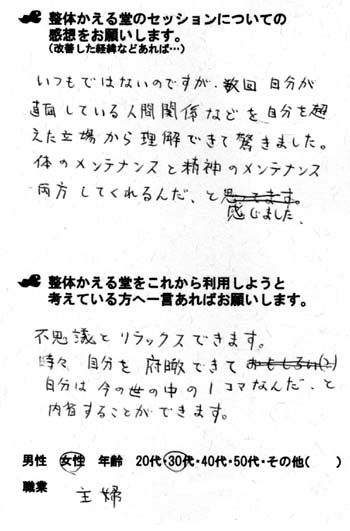 整体かえる堂のセッションについての
感想をお願いします。
(改善した経緯などあれば…)
いつもではないのですが、数回 自分が
直面している人間関係などを自分を超
えた立場から理解できて驚きました。
体のメンテナンスと精神のメンテナンス
両方してくれるんだ、と思ってます。
感じました。
整体かえる堂をこれから利用しようと
考えている方へ一言あればお願いします。
不思議とリラックスできます。
時々、自分を俯瞰できて おもしろい(?)
自分は今の世の中の1コマなんだ、と
内省することができます。
男性 女性 年齢 20代・30代・40代・50代・その他( )
職業 主婦